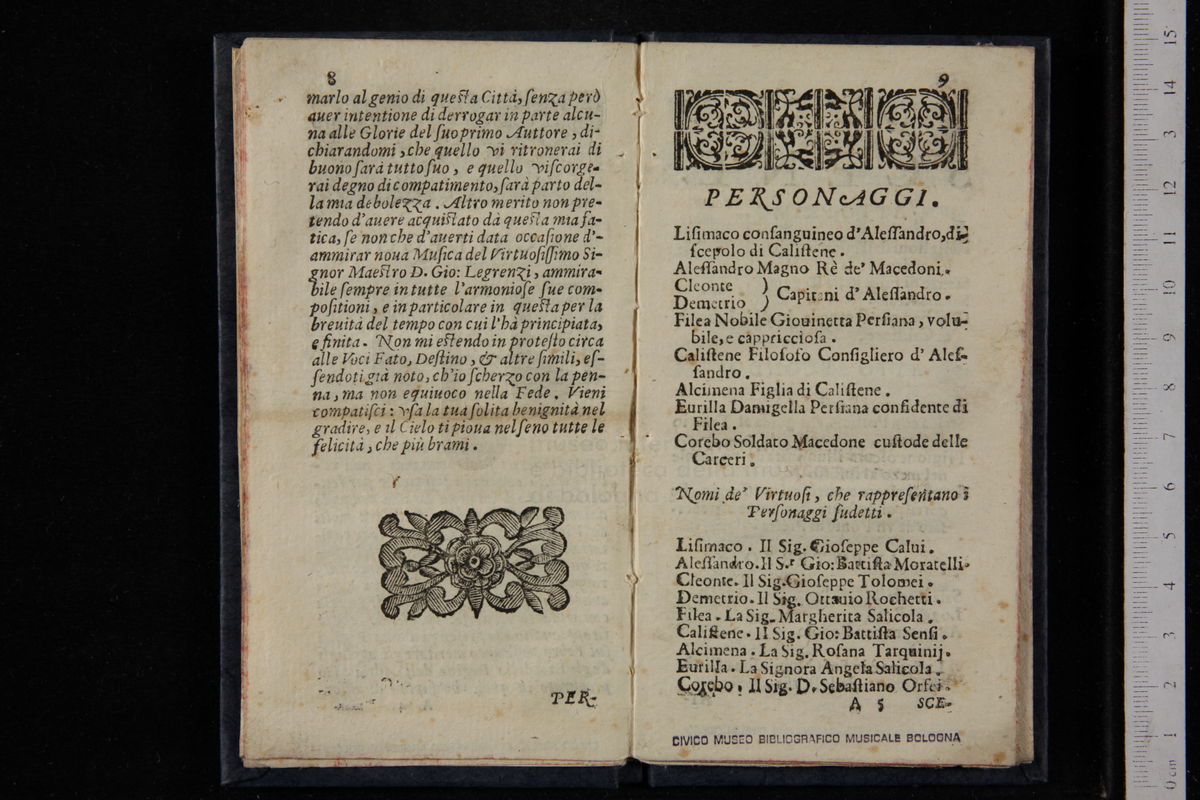 8
marlo al genio di questa Città, senza però
auer intentione di derrogar in parte alcu-
na alle Glorie del suo primo Auttore, di-
chiarandomi, che quello vi ritronerai di
buono sarà tutto suo, e quello vi scorge-
rai degno di compatimento, sarà parto del-
la mia debolezza. Altro merito non pre-
tendo d'auere acquistato dà questa mia fa-
tica, se non che d'auerti data occasione d'-
ammirar noua Musica del Virtuosissimo Si-
gnor Maestro D. Gio: Legrenzi, ammira-
bile sempre in tutte l'armoniose sue com-
positioni, e in particolare in questa per la
breuità del tempo con cui l'hà principiata,
e finita. Non mi estendo in protesto circa
alle Voci Fato, Destino, & altre simili, es-
sendoti già noto, ch'io scherzo con la pen-
na, ma non equiuoco nella Fede. Vieni
compatisci: vsa la tua solita benignità nel
gradire, e il Cielo ti pioua nel seno tutte le
felicità, che più brami.
PER-
9
PERSONAGGI.
Lisimaco consanguineo d'Alessandro, di-
scepolo di Calistene.
Alessandro Magno Rè de' Macedoni.
Cleonte
Demetrio ) Capitani d'Alessandro.
Filea Nobile Giouinetta Persiana, volu-
bile, e cappricciosa.
Calistene Filosofo Consigliero d' Ales-
sandro.
Alcimena Figlia di Calistene.
Eurilla Damigella Persiana confidente di
Filea.
Corebo Soldato Macedone custode delle
Carceri.
Nomi de' Virtuosi, che rappresentano i
Personaggi sudetti.
Lisimaco. Il Sig. Gioseppe Calui.
Alessandro. Il S.r Gio: Battista Moratelli.
Cleonte. Il Sig. Gioseppe Tolomei.
Demetrio. Il Sig. Ottauio Rochetti.
Filea. La Sig. Margherita Salicola.
Calistene. Il Sig. Gio: Battista Sensi.
Alcimena. La Sig. Rosana Tarquinij.
Eurilla. La Signora Angela Salicola.
Corebo. Il Sig. D. Sebastiano Orfei.
A 5 SCE-
CIVICO MUSEO BIBLIOGRAFICO MUSICALE BOLOGNA
15
14
13
12
11
10
9
8
7
6
5
4
3
2
1
0 cm